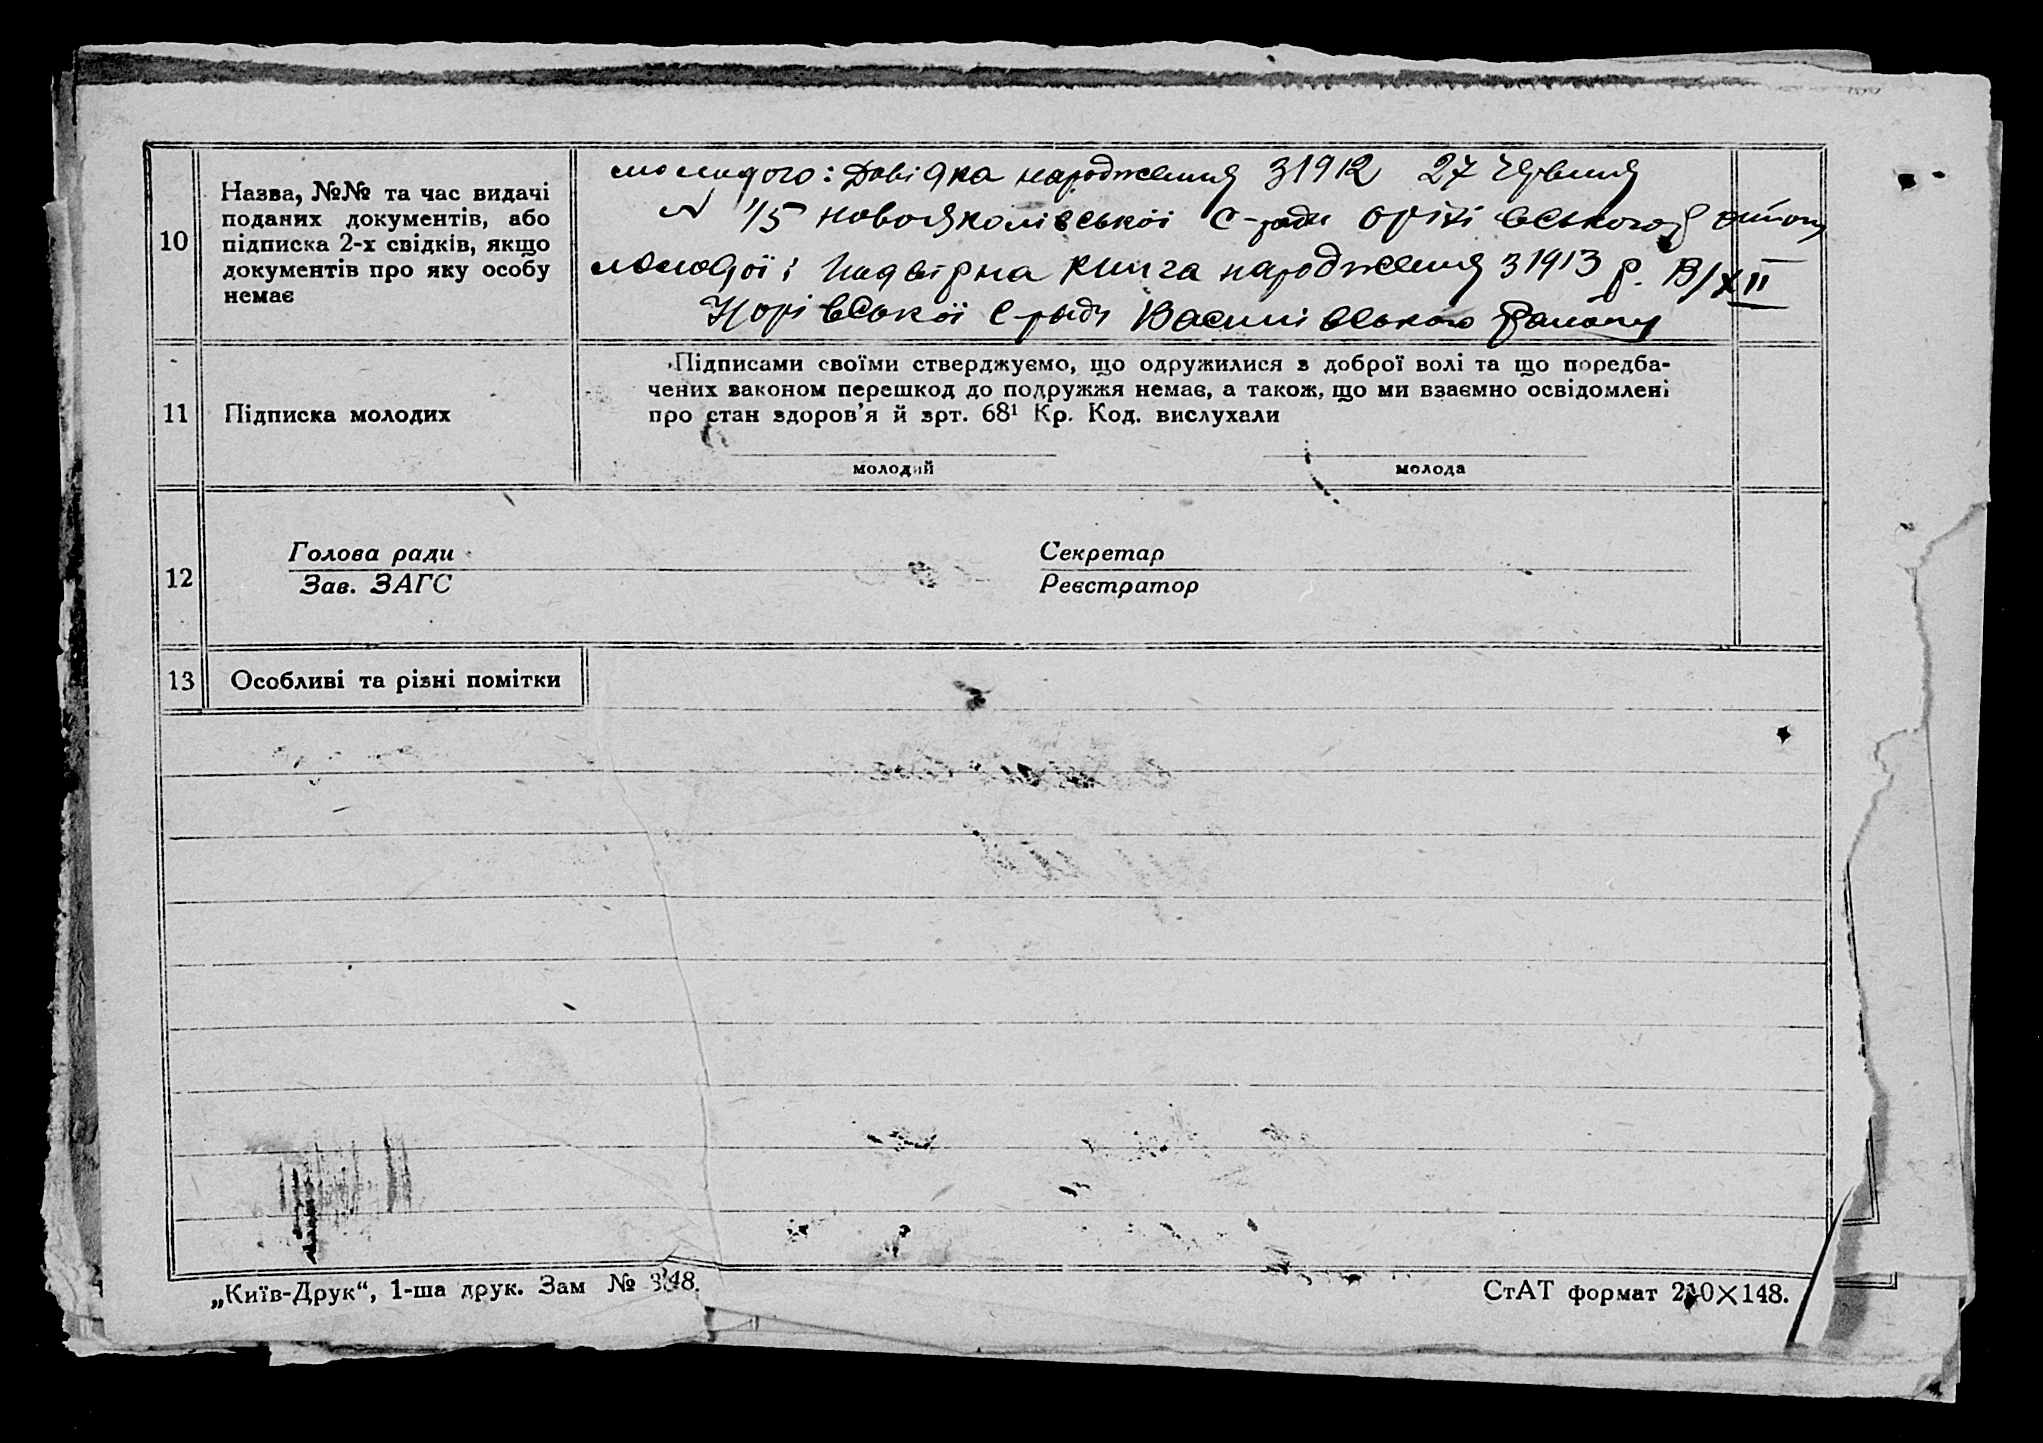 10
Назва, №№ та час видачі
поданих документів, або
підписка 2-х свідків, якщо
документів про яку особу
немає
молодого: Довідка народження з 1912 27 червня
N 15 новояколівської с-ради оріхівського району
молодої: Подвірна книга народження з 1913 р. В/XII
с-ради Василівського району
11
Підписка молодих
Підписами своїми стверджуємо, що одружилися з доброї волі та що поредба-
чених законом перешкод до подружжя немає, а також, що ми взаємно освідомлені
про стан здоров'я й зрт. 68¹ Кр. Код. вислухали
молодий молода
12
Голова ради Секретар
Зав. ЗАГС Реєстратор
13 Особливі та різні помітки
„Київ-Друк“, 1-ша друк. Зам № 48. СтАТ формат 210×148.